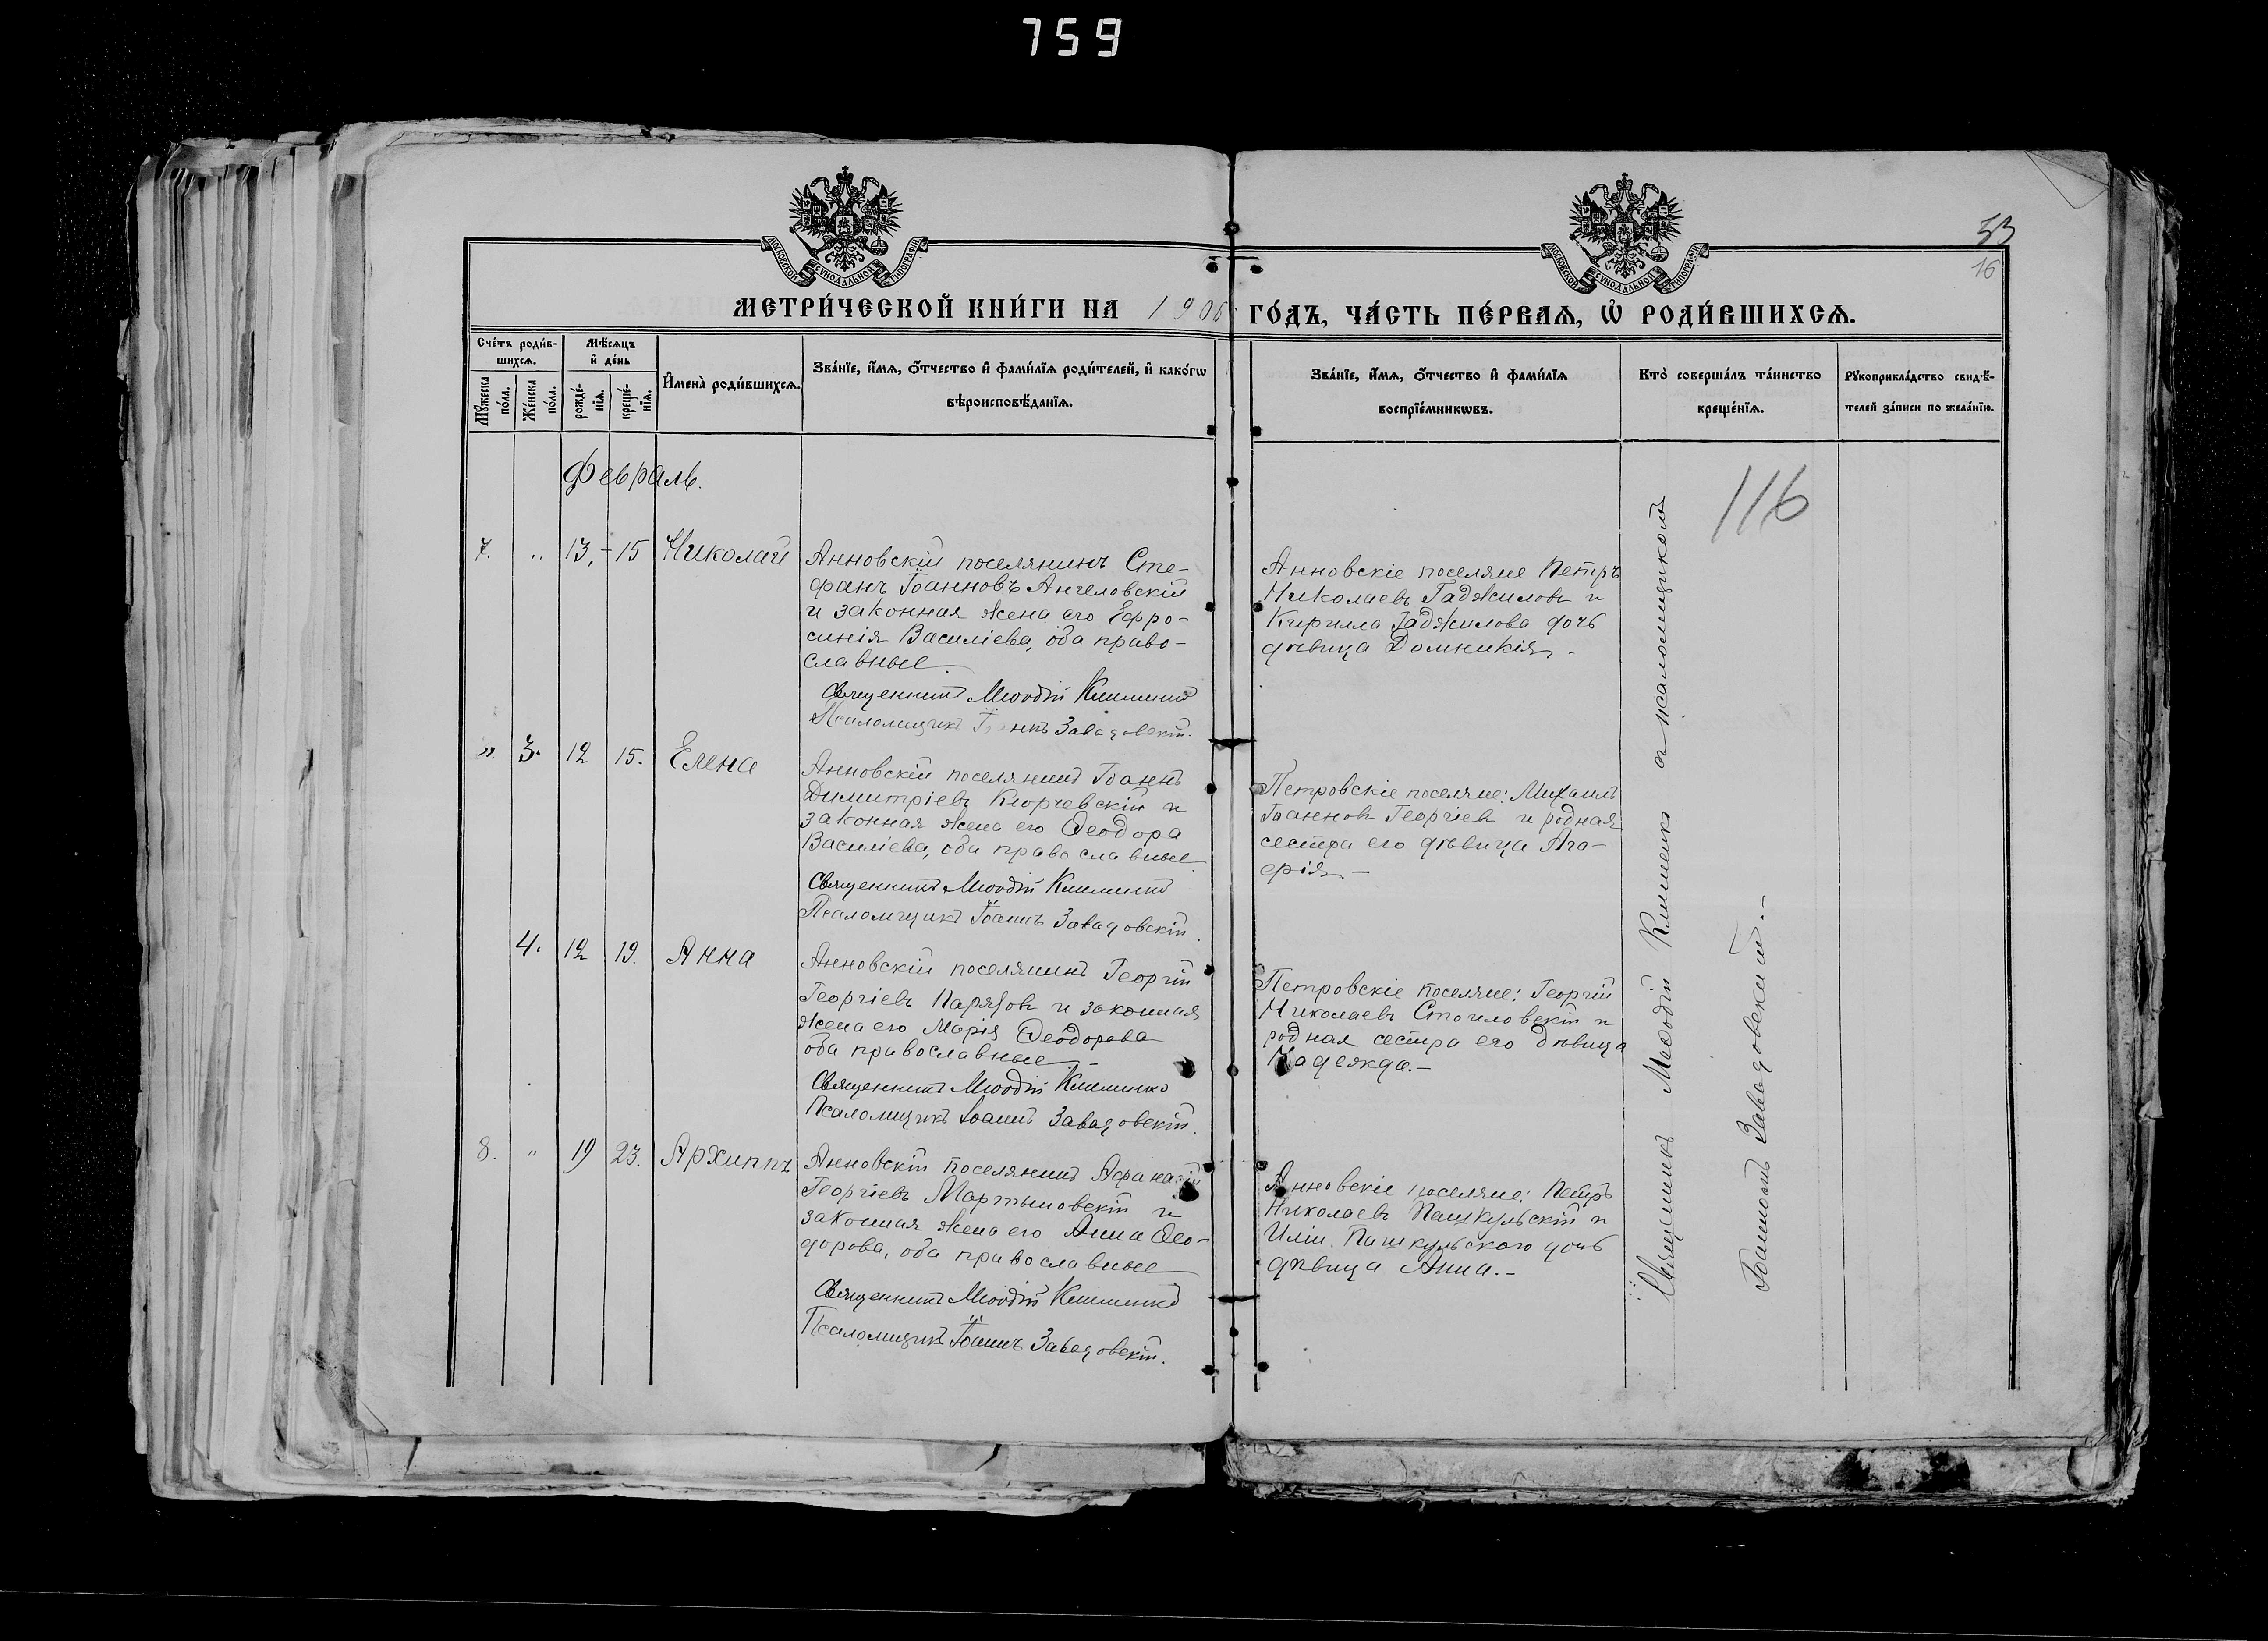 759
МОСКОВСКОЙ СѴНОДАЛЬНОЙ ТИПОГРАФІИ
МОСКОВСКОЙ СѴНОДАЛЬНОЙ ТИПОГРАФІИ
33
16
МЕТРИ́ЧЕСКОЙ КНИ́ГИ НА 1906 ГО́ДЪ, ЧА́СТЬ ПЕ́РВАѦ, Ѡ҆ РОДИ́ВШИХСѦ.
Сче́тъ роди́в-
шихсѧ.
Мѣ́сѧцъ
и҆ де́нь
Мꙋ́жеска
по́ла.
Же́нска
по́ла.
рожде́-
нїѧ.
креще́-
нїѧ.
И҆мена̀ роди́вшихсѧ.
Зва́нїе, и҆́мѧ, ѻ҆́тчество и҆ фами́лїѧ роди́телей, и҆ како́гѡ
вѣроисповѣ́данїѧ.
Зва́нїе, и҆́мѧ, ѻ҆́тчество и҆ фами́лїѧ
воспрїе́мникѡвъ.
Кто̀ соверша́лъ та́инство
креще́нїѧ.
Рꙋкоприкла́дство свидѣ́-
телей за́писи по жела́нїю.
Февраль.
116
7. " 13, - 15 Николай
Анновскій поселянинъ Сте-
фанъ Іоанновъ Ангеловскій
и законная жена его Ефро-
синія Василіева, оба право-
славные
Священникъ Меѳодій Клименко
Псаломщикъ Іоаннъ Завадовскій.
Анновскіе поселяне Петръ
Николаевъ Гаджиловъ и
Кирилла Гаджилова дочь
дѣвица Домникія.
" 3. 12 15. Елена
Анновскій поселянинъ Іоаннъ
Димитріевъ Кюрчевскій и
законная жена его Ѳеодора
Василіева, оба православные
Священникъ Меѳодій Клименко
Псаломщикъ Іоаннъ Завадовскій.
Петровскіе поселяне: Михаилъ
Іоанновъ Георгіевъ и родная
сестра его дѣвица Ага-
ѳрія –
4. 12 19. Анна
Анновскій поселянинъ Георгій
Георгіевъ и законная
жена его Марія Ѳеодорова
оба православные –
Священникъ Меѳодій Клименко
Псаломщикъ Іоаннъ Завадовскій.
Петровскіе поселяне: Георгій
Николаевъ Стоиловскій и
родная сестра его дѣвица
Надежда. –
8. " 19 23. Архиппъ
Анновскій поселянинъ Афанасій
Георгіевъ Мартыновскій и
законная жена его Анна Ѳео-
дорова, оба православные
Священникъ Меѳодій Клименко
Псаломщикъ Іоаннъ Завадовскій.
Анновскіе поселяне: Петръ
Николаевъ Пашкульскій и
Иліи Пашкульскаго дочь
дѣвица Анна. –
Священникъ Меѳодій Клименко съ псаломщикомъ
Іоанномъ Завадовскимъ. –